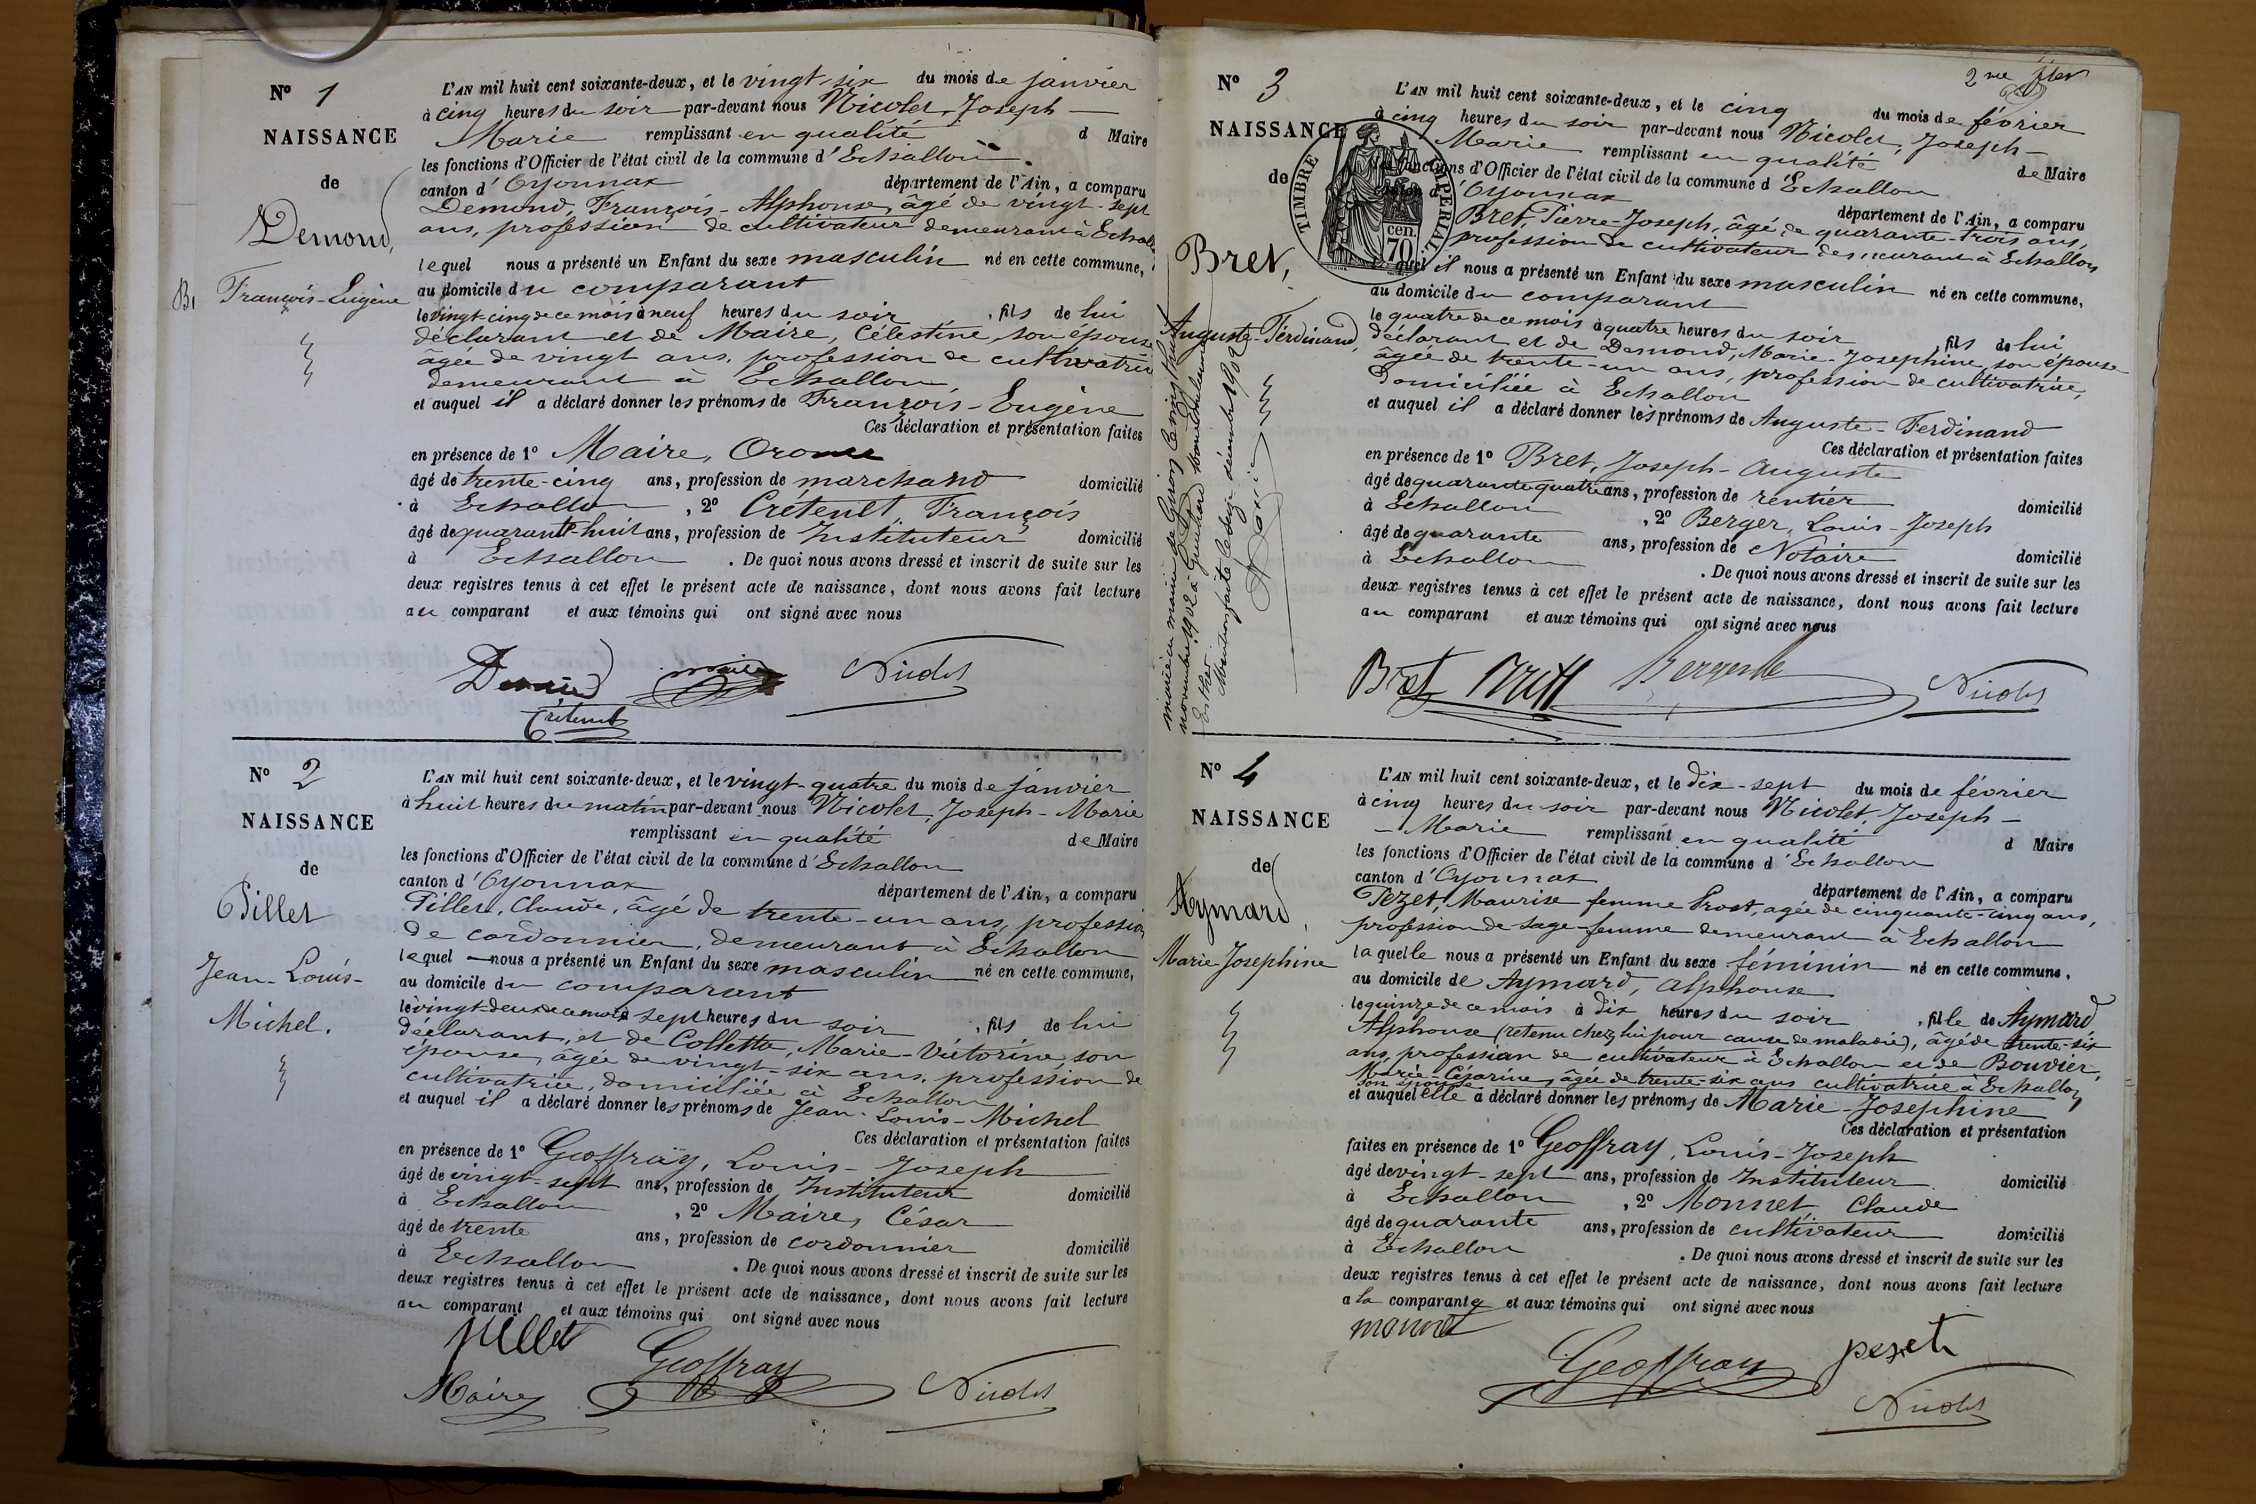 N° 1
NAISSANCE
de
Demond,
François-Eugène
L'AN mil huit cent soixante-deux, et le vingt-six du mois de janvier
à cinq heures du soir par-devant nous Nicolet, Joseph-
Marie remplissant en qualité d Maire
les fonctions d'Officier de l'état civil de la commune d'Echallon
canton d'Oyonnax département de l'Ain, a comparu
Demond, François-Alphonse, âgé de vingt-sept
ans, profession de cultivateur demeurant à Echallon
lequel nous a présenté un Enfant du sexe masculin né en cette commune,
au domicile du comparant
le vingt-cinq de ce mois à neuf heures du soir, fils de lui
déclarant et de Maire, Célestine, son épouse
âgée de vingt ans, profession de cultivatrice
demeurant à Echallon,
et auquel il a déclaré donner les prénoms de François-Eugène
Ces déclaration et présentation faites
en présence de 1° Maire, Orome
âgé de trente-cinq ans, profession de marchand domicilié
à Echallon, 2° Crétenet, François
âgé de quarante-huit ans, profession de Instituteur domicilié
à Echallon. De quoi nous avons dressé et inscrit de suite sur les
deux registres tenus à cet effet le présent acte de naissance, dont nous avons fait lecture
au comparant et aux témoins qui ont signé avec nous
Demond Maire Nicolet
Crétenet
N° 2
NAISSANCE
de
Pillet
Jean-Louis-
Michel.
L'AN mil huit cent soixante-deux, et le vingt-quatre du mois de janvier
à huit heures du matin par-devant nous Nicolet, Joseph-Marie
remplissant en qualité de Maire
les fonctions d'Officier de l'état civil de la commune d'Echallon
canton d'Oyonnax département de l'Ain, a comparu
Pillet, Claude, âgé de trente-un ans, profession
de cordonnier, demeurant à Echallon
lequel nous a présenté un Enfant du sexe masculin né en cette commune,
au domicile du comparant
le vingt-deux de ce mois à sept heures du soir, fils de lui
déclarant, et de Colletta, Marie-Victorine, son
épouse, âgée de vingt-six ans, profession de
cultivatrice, domiciliée à Echallon
et auquel il a déclaré donner les prénoms de Jean-Louis-Michel
Ces déclaration et présentation faites
en présence de 1° Geoffray, Louis-Joseph
âgé de vingt-sept ans, profession de Instituteur domicilié
à Echallon, 2° Maire, César
âgé de trente ans, profession de cordonnier domicilié
à Echallon. De quoi nous avons dressé et inscrit de suite sur les
deux registres tenus à cet effet le présent acte de naissance, dont nous avons fait lecture
au comparant et aux témoins qui ont signé avec nous
pillet Geoffray
Maire Nicolet
2me
N° 3
NAISSANCE
de
TIMBRE IMPÉRIAL
70 cen.
Bret,
Auguste-Ferdinand,
marié en mairie de Giron le
novembre 1902 à
Esther
Mention faite le deux décembre 1902
L'AN mil huit cent soixante-deux, et le cinq du mois de février
à cinq heures du soir par-devant nous Nicolet, Joseph-
Marie remplissant en qualité de Maire
les fonctions d'Officier de l'état civil de la commune d'Echallon
canton d'Oyonnax département de l'Ain, a comparu
Bret, Pierre-Joseph, âgé de quarante-trois ans,
profession de cultivateur demeurant à Echallon
lequel il nous a présenté un Enfant du sexe masculin né en cette commune,
au domicile du comparant
le quatre de ce mois à quatre heures du soir, fils de lui
déclarant et de Demond, Marie-Josephine, son épouse
âgée de trente-un ans, profession de cultivatrice,
domiciliée à Echallon
et auquel il a déclaré donner les prénoms de Auguste-Ferdinand
Ces déclaration et présentation faites
en présence de 1° Bret, Joseph-Auguste
âgé de quarante quatre ans, profession de rentier domicilié
à Echallon, 2° Berger, Louis-Joseph
âgé de quarante ans, profession de Notaire domicilié
à Echallon. De quoi nous avons dressé et inscrit de suite sur les
deux registres tenus à cet effet le présent acte de naissance, dont nous avons fait lecture
au comparant et aux témoins qui ont signé avec nous
Bret Brett Berger Nicolet
N° 4
NAISSANCE
de
Aymard,
Marie Josephine
L'AN mil huit cent soixante-deux, et le dix-sept du mois de février
à cinq heures du soir par-devant nous Nicolet, Joseph-
-Marie remplissant en qualité d Maire
les fonctions d'Officier de l'état civil de la commune d'Echallon
canton d'Oyonnax département de l'Ain, a comparu
Pezet, Maurise femme Prost, agée de cinquante-cinq ans,
profession de sage-femme demeurant à Echallon
laquelle nous a présenté un Enfant du sexe féminin né en cette commune,
au domicile de Aymard, alphonse
le quinze de ce mois à dix heures du soir, fille de Aymard
Alphonse (retenu chez lui pour cause de maladie), âgé de trente-six
ans, profession de cultivateur à Echallon et de Bouvier,
Marie-Césarine, âgée de trente-six ans cultivatrice à Echallon
son épouse
et auquel elle a déclaré donner les prénoms de Marie-Josephine
Ces déclaration et présentation
faites en présence de 1° Geoffray, Louis-Joseph
âgé de vingt-sept ans, profession de Instituteur domicilié
à Echallon, 2° Monnet, Claude
âgé de quarante ans, profession de cultivateur domicilié
à Echallon. De quoi nous avons dressé et inscrit de suite sur les
deux registres tenus à cet effet le présent acte de naissance, dont nous avons fait lecture
a la comparante et aux témoins qui ont signé avec nous
monnet
Geoffray pezet
Nicolet